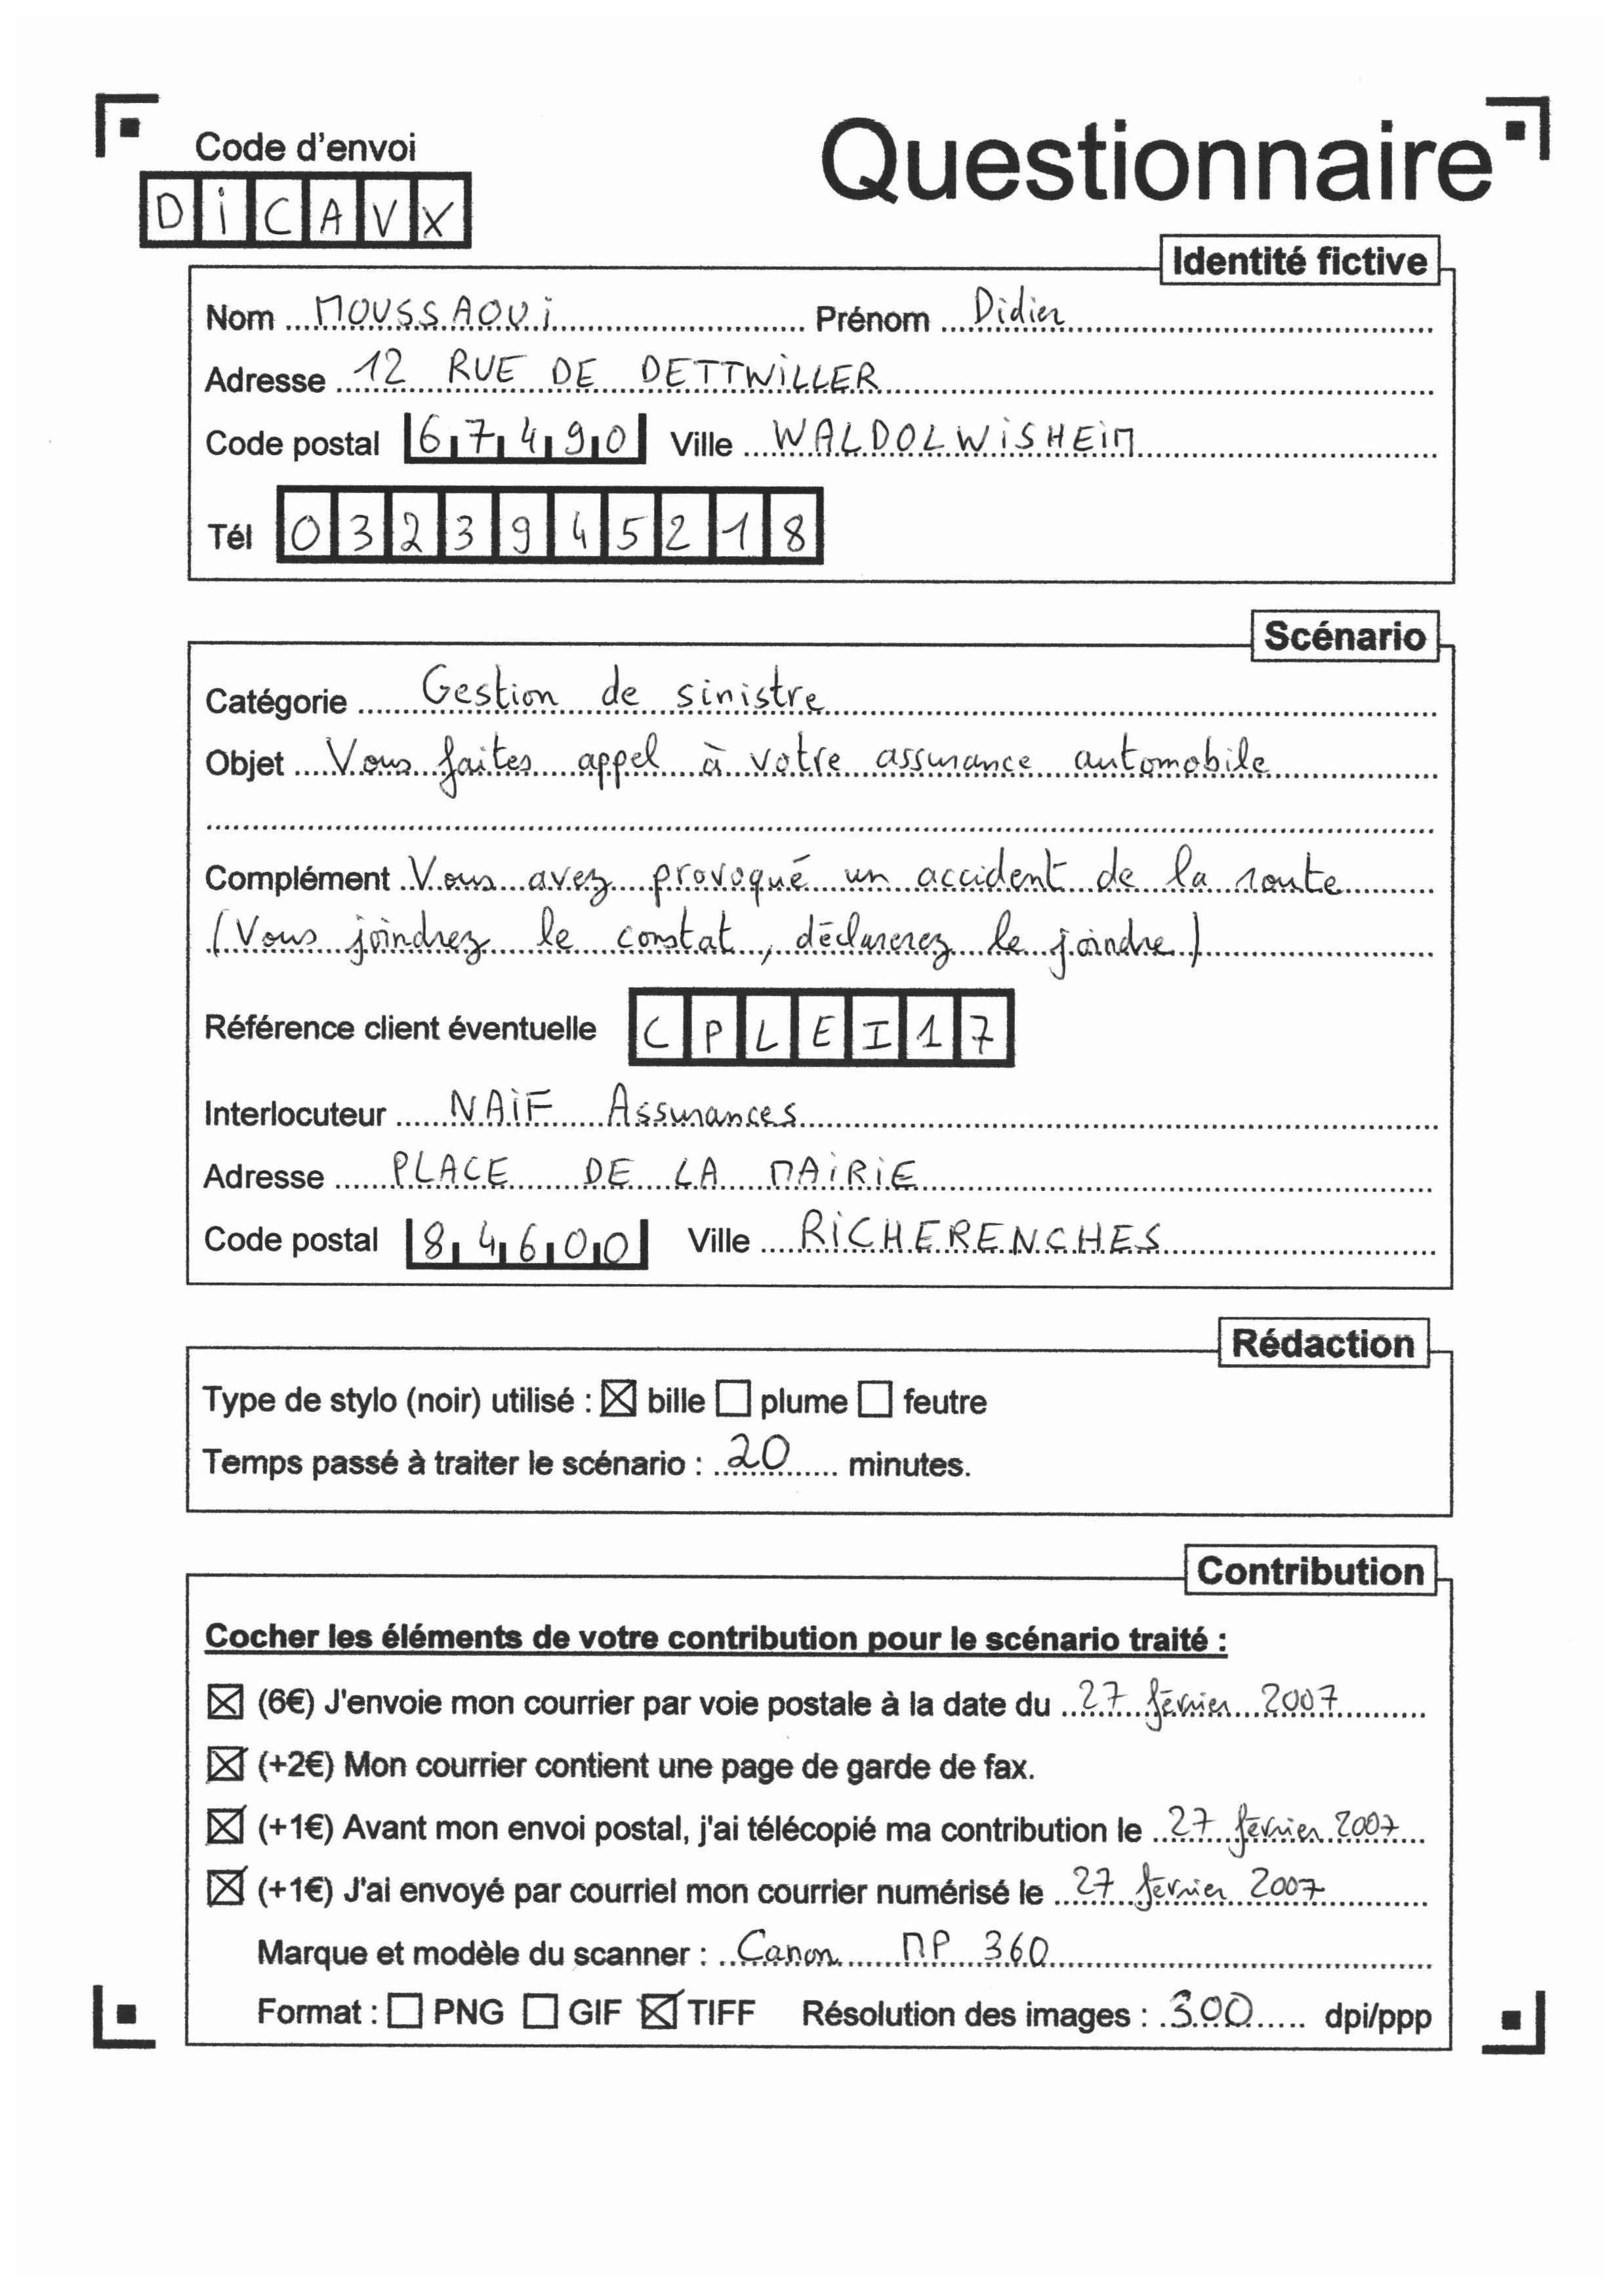 Code d'envoi
Questionnaire
DiCAVX
Identité fictive
Nom MOUSSAOUi Prénom Didier
Adresse 12 RUE DE DETTWiLLER
Code postal 67490 Ville WALDOLWiSHEiM
Tél 0323945218
Scénario
Catégorie Gestion de sinistre
Objet Vous faites appel à votre assurance automobile
Complément Vous avez provoqué un accident de la route
(Vous joindrez le constat, déclarerez le joindre)
Référence client éventuelle CPLEI17
Interlocuteur NAiF Assurances
Adresse PLACE DE LA MAiRiE
Code postal 84600 Ville RiCHERENCHES
Rédaction
Type de stylo (noir) utilisé : ☒ bille ☐ plume ☐ feutre
Temps passé à traiter le scénario : 20 minutes.
Contribution
Cocher les éléments de votre contribution pour le scénario traité :
☒ (6€) J'envoie mon courrier par voie postale à la date du 27 février 2007
☒ (+2€) Mon courrier contient une page de garde de fax.
☒ (+1€) Avant mon envoi postal, j'ai télécopié ma contribution le 27 février 2007
☒ (+1€) J'ai envoyé par courriel mon courrier numérisé le 27 février 2007
Marque et modèle du scanner : Canon MP 360
Format : ☐ PNG ☐ GIF ☒ TIFF Résolution des images : 300 dpi/ppp